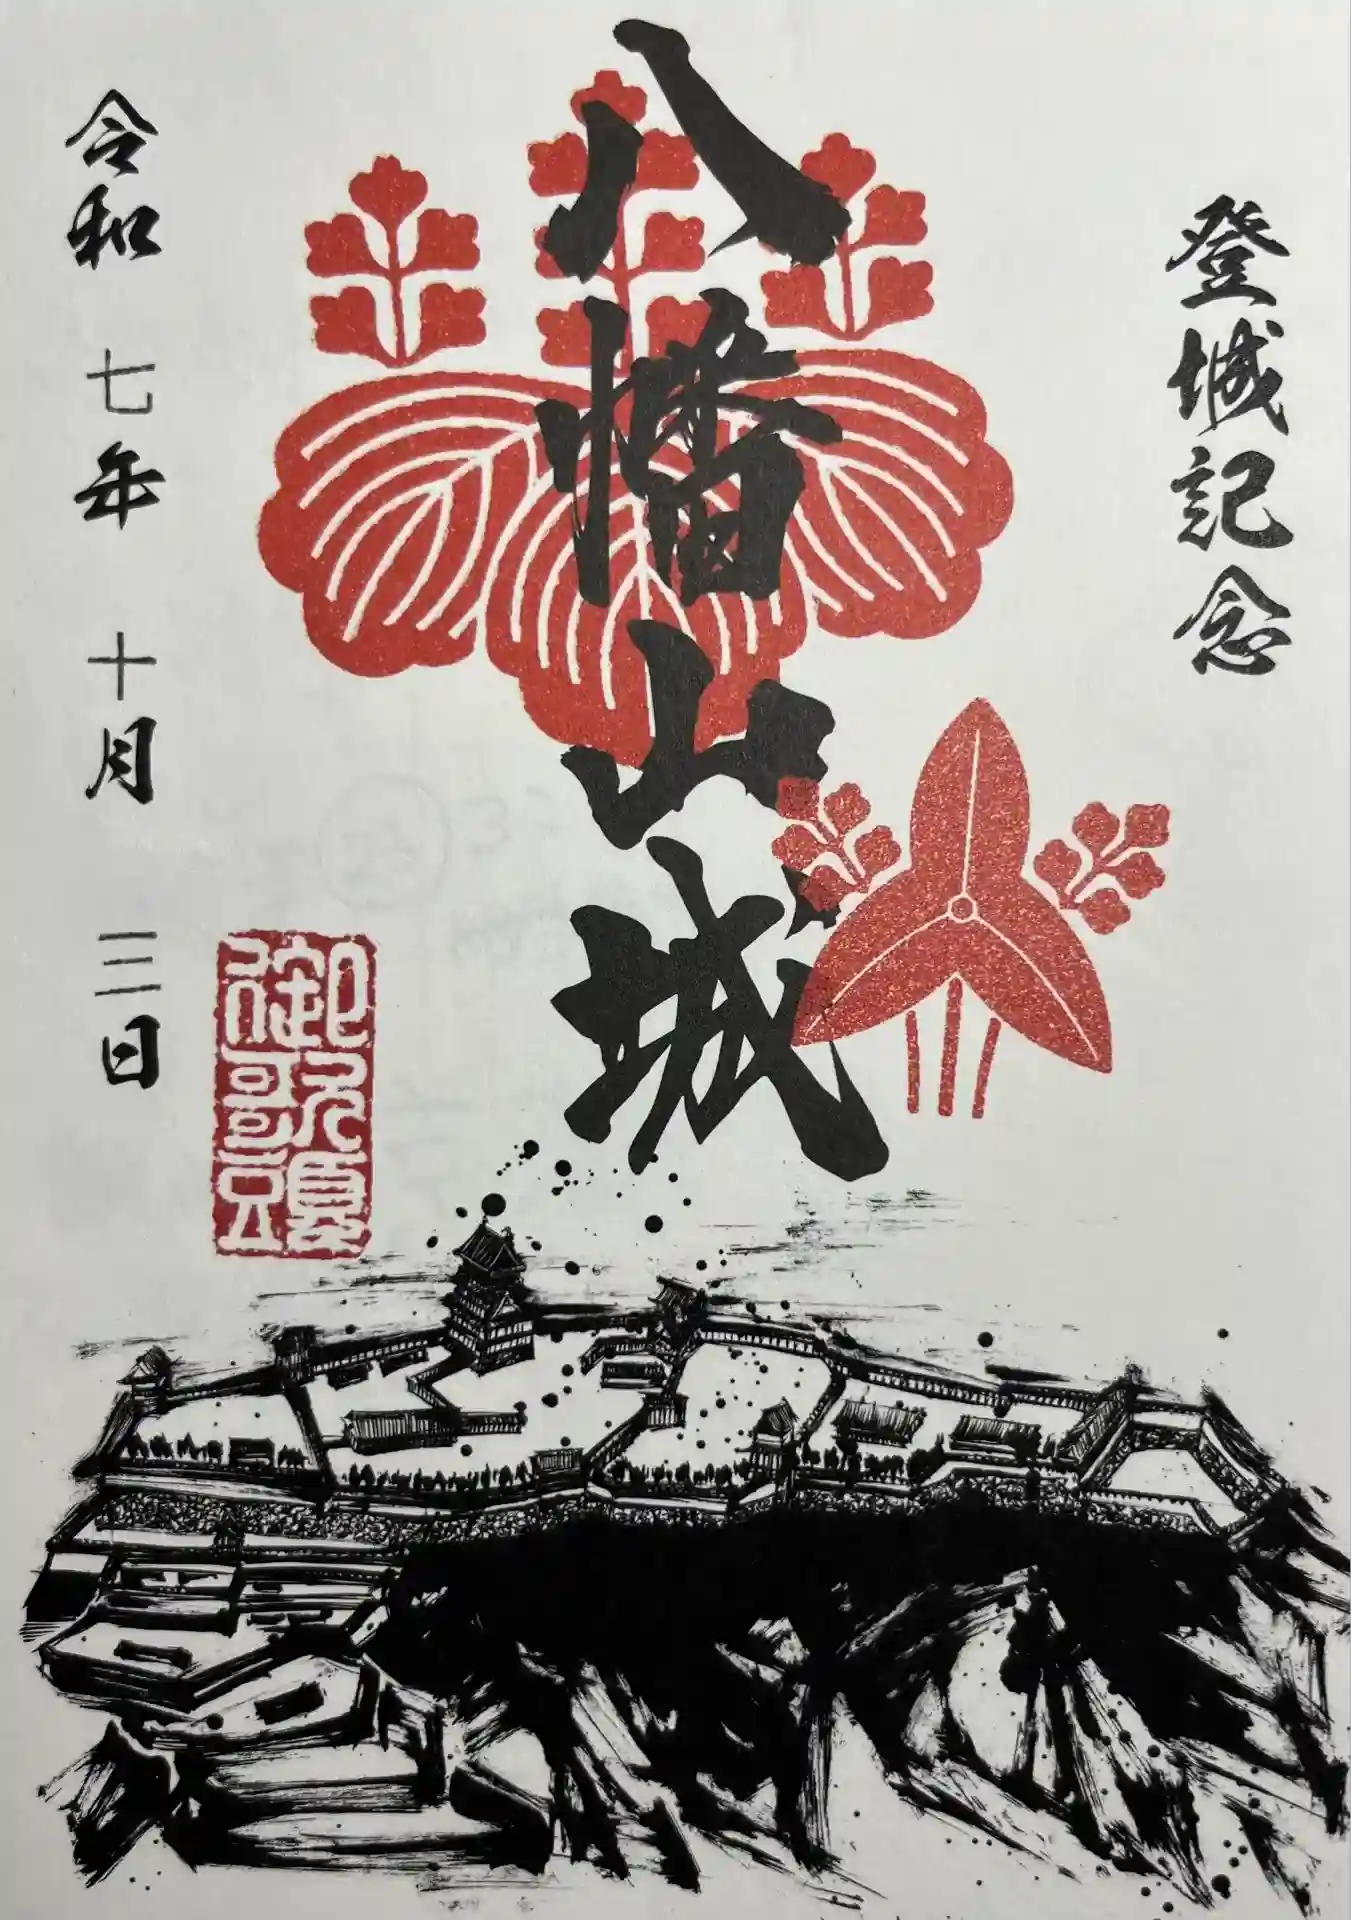 登城記念
八幡山城
令和七年十月三日
御歌頭